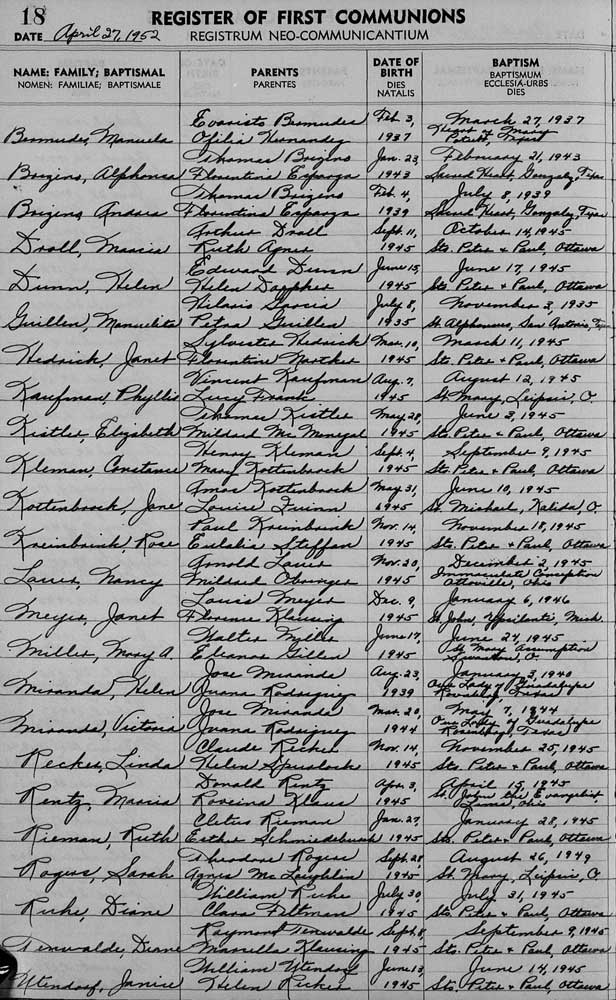 18 REGISTER OF FIRST COMMUNIONS
DATE April 27, 1952 REGISTRUM NEO-COMMUNICANTIUM
NAME: FAMILY; BAPTISMAL PARENTS DATE OF BIRTH BAPTISM
NOMEN: FAMILIAE; BAPTISMALE PARENTES DIES NATALIS BAPTISMUM ECCLESIA-URBS DIES
Evaristo Bermudez Feb. 3, March 27, 1937
Bermudez, Manuela Ofilia Hernandez 1937 Heart of Mary Poteet, Texas
Thomas Brizins Jan. 23, February 21, 1943
Brizins, Alphonsa Florentina Esparza 1943 Sacred Heart, Gonzales, Texas
Thomas Brizins Feb. 4, July 8, 1939
Brizins Andrea Florentina Esparza 1939 Sacred Heart, Gonzales, Texas
Arthur Droll Sept. 11, October 14, 1945
Droll, Maria Ruth Agner 1945 Sts. Peter & Paul, Ottawa
Edward Dunn June 15, June 17, 1945
Dunn, Helen Helen 1945 Sts. Peter & Paul, Ottawa
Hilario Garcia July 8, November 3, 1935
Guillen, Manuelita Petra Guillen 1935 St. Alphonsus, San Antonio, Tex
Sylvester Hedrick Mar. 10, March 11, 1945
Hedrick, Janet Florentine 1945 Sts. Peter & Paul, Ottawa
Vincent Kaufman Aug. 7, August 12, 1945
Kaufman, Phyllis Lucy Frank 1945 St. Mary, Leipsic, O.
Thomas Kistler May 28, June 3, 1945
Kistler, Elizabeth Mildred Mc Menegal 1945 Sts. Peter & Paul, Ottawa
Henry Kleman Sept. 4, September 9, 1945
Kleman, Constance Mary Kottenbrock 1945 Sts. Peter & Paul, Ottawa
Amos Kottenbrock May 31, June 10, 1945
Kottenbrock, Jane Louise 1945 St. Michael, Kalida, O.
Paul Nov. 14, November 18, 1945
Rose Eulalia Steffan 1945 Sts. Peter & Paul, Ottawa
Arnold Lauer Nov. 20, December 2, 1945
Lauer, Nancy Mildred 1945 Immaculate Conception Ottoville, Ohio
Louis Meyer Dec. 9, January 6, 1946
Meyer, Janet Florence Klausing 1945 St. John, Ypsilanti, Mich.
Walter Miller June 17, June 24, 1945
Miller, Mary A. Eleanor Gillen 1945 St. Mary Assumption O.
Jose Miranda Aug. 23, January 3, 1940
Miranda, Helen Juana Rodriguez 1939 Our Lady of Guadalupe Texas
Jose Miranda Mar. 20, May 7, 1944
Miranda, Victoria Juana Rodriguez 1944 Our Lady of Guadalupe Rosenberg, Texas
Claude Recker Nov. 14, November 25, 1945
Recker, Linda Helen Spurlock 1945 Sts. Peter & Paul, Ottawa
Donald Rentz Apr. 3, April 15, 1945
Rentz, Maria Roseina Klaus 1945 St. John the Evangelist, Lima, Ohio
Cletus Rieman Jan. 27, January 28, 1945
Rieman, Ruth Esther Schmiedebusch 1945 Sts. Peter & Paul, Ottawa
Theodore Rogers Sept. 28 August 26, 1949
Rogers, Sarah Agnes Mc Laughlin 1945 St. Mary, Leipsic, O.
William Ruhe July 30, July 31, 1945
Ruhe, Diane Clara Feltman 1945 Sts. Peter & Paul, Ottawa
Raymond Tenwalde Sept. 8, September 9, 1945
Tenwalde, Diane Marcella Klausing 1945 Sts. Peter & Paul, Ottawa
William Utendorf June 13, June 14, 1945
Utendorf, Janice Helen Recker 1945 Sts. Peter & Paul, Ottawa